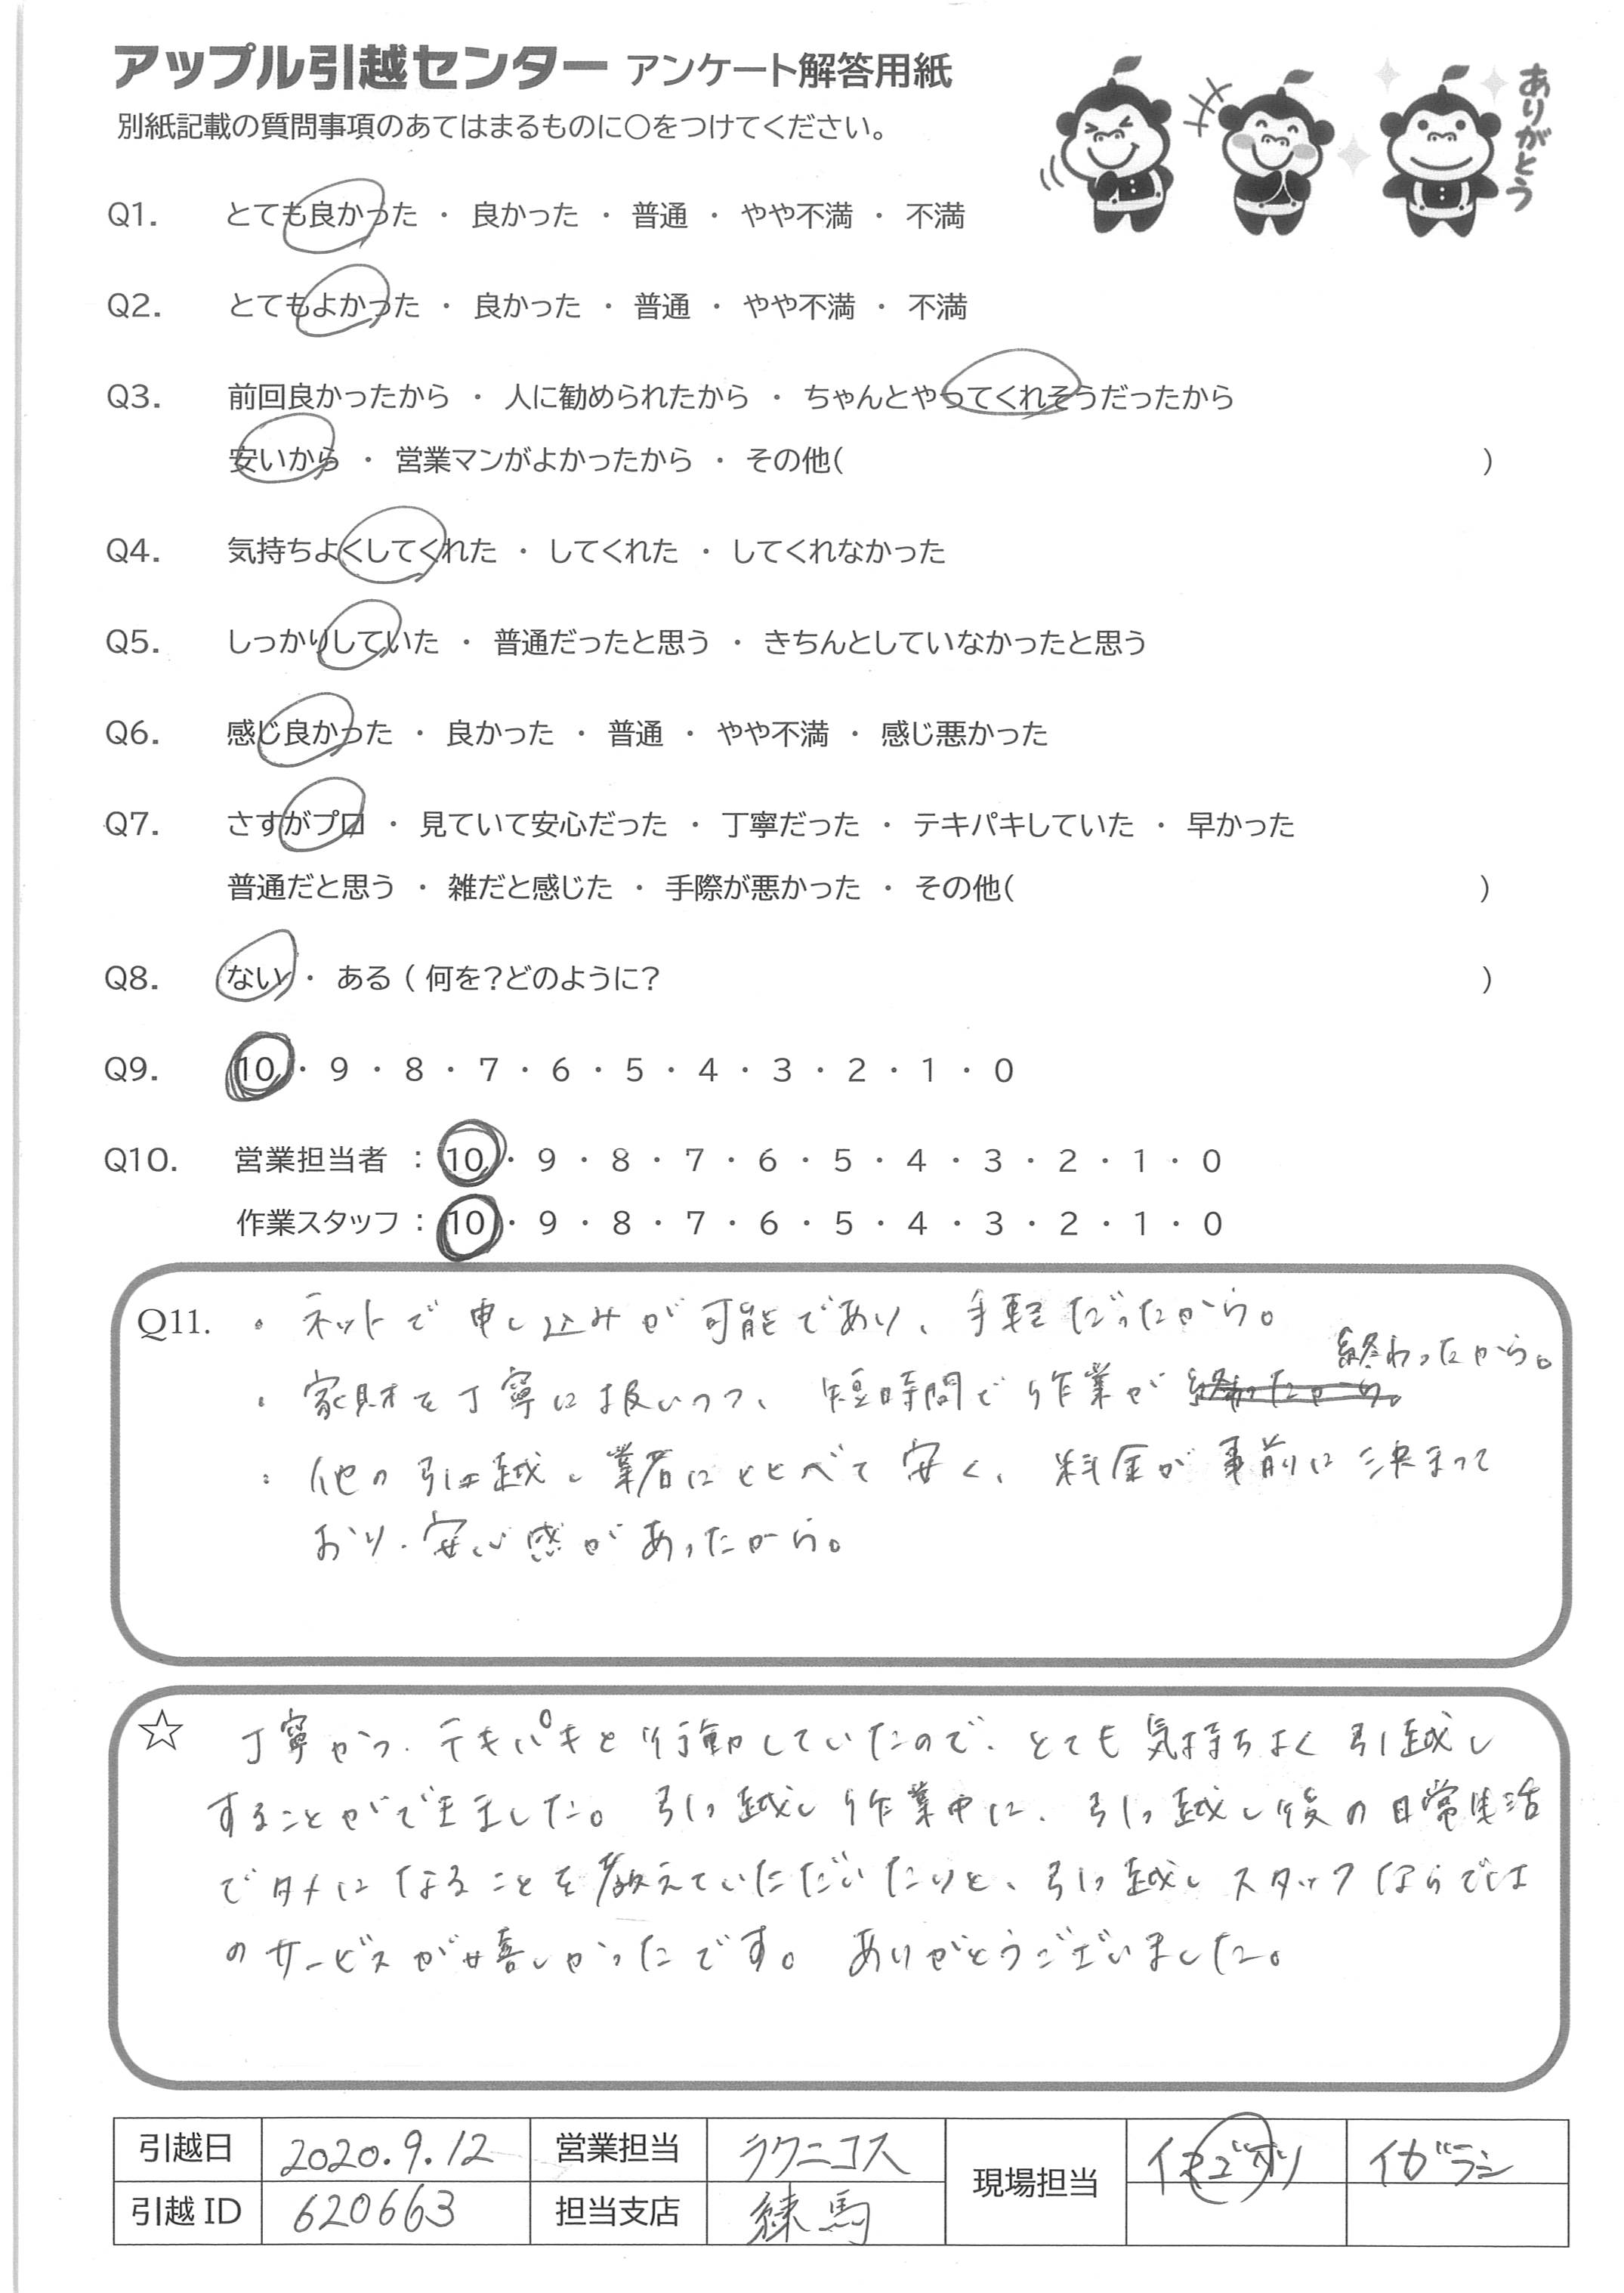 アップル引越センター アンケート解答用紙
別紙記載の質問事項のあてはまるものに○をつけてください。
ありがとう
Q1. とても良かった ・ 良かった ・ 普通 ・ やや不満 ・ 不満
Q2. とてもよかった ・ 良かった ・ 普通 ・ やや不満 ・ 不満
Q3. 前回良かったから ・ 人に勧められたから ・ ちゃんとやってくれそうだったから
安いから ・ 営業マンがよかったから ・ その他( )
Q4. 気持ちよくしてくれた ・ してくれた ・ してくれなかった
Q5. しっかりしていた ・ 普通だったと思う ・ きちんとしていなかったと思う
Q6. 感じ良かった ・ 良かった ・ 普通 ・ やや不満 ・ 感じ悪かった
Q7. さすがプロ ・ 見ていて安心だった ・ 丁寧だった ・ テキパキしていた ・ 早かった
普通だと思う ・ 雑だと感じた ・ 手際が悪かった ・ その他( )
Q8. ない ・ ある ( 何を?どのように? )
Q9. 10 ・ 9 ・ 8 ・ 7 ・ 6 ・ 5 ・ 4 ・ 3 ・ 2 ・ 1 ・ 0
Q10. 営業担当者 : 10 ・ 9 ・ 8 ・ 7 ・ 6 ・ 5 ・ 4 ・ 3 ・ 2 ・ 1 ・ 0
作業スタッフ : 10 ・ 9 ・ 8 ・ 7 ・ 6 ・ 5 ・ 4 ・ 3 ・ 2 ・ 1 ・ 0
Q11. ・ ネットで申し込みが可能であり、手軽だったから。
・ 家財を丁寧に扱いつつ、短時間で作業が終わったから。
・ 他の引っ越し業者にくらべて安く、料金が事前に決まって
おり、安心感があったから。
☆ 丁寧かつ、テキパキと行動していたので、とても気持ちよく引越し
することができました。引っ越し作業中に、引っ越し後の日常生活
でタメになることを教えていただいたりと、引っ越しスタッフならでは
のサービスが嬉しかったです。ありがとうございました。
引越日 2020.9.12 営業担当 ラクニコス 現場担当 イガラシ
引越ID 620663 担当支店 練馬